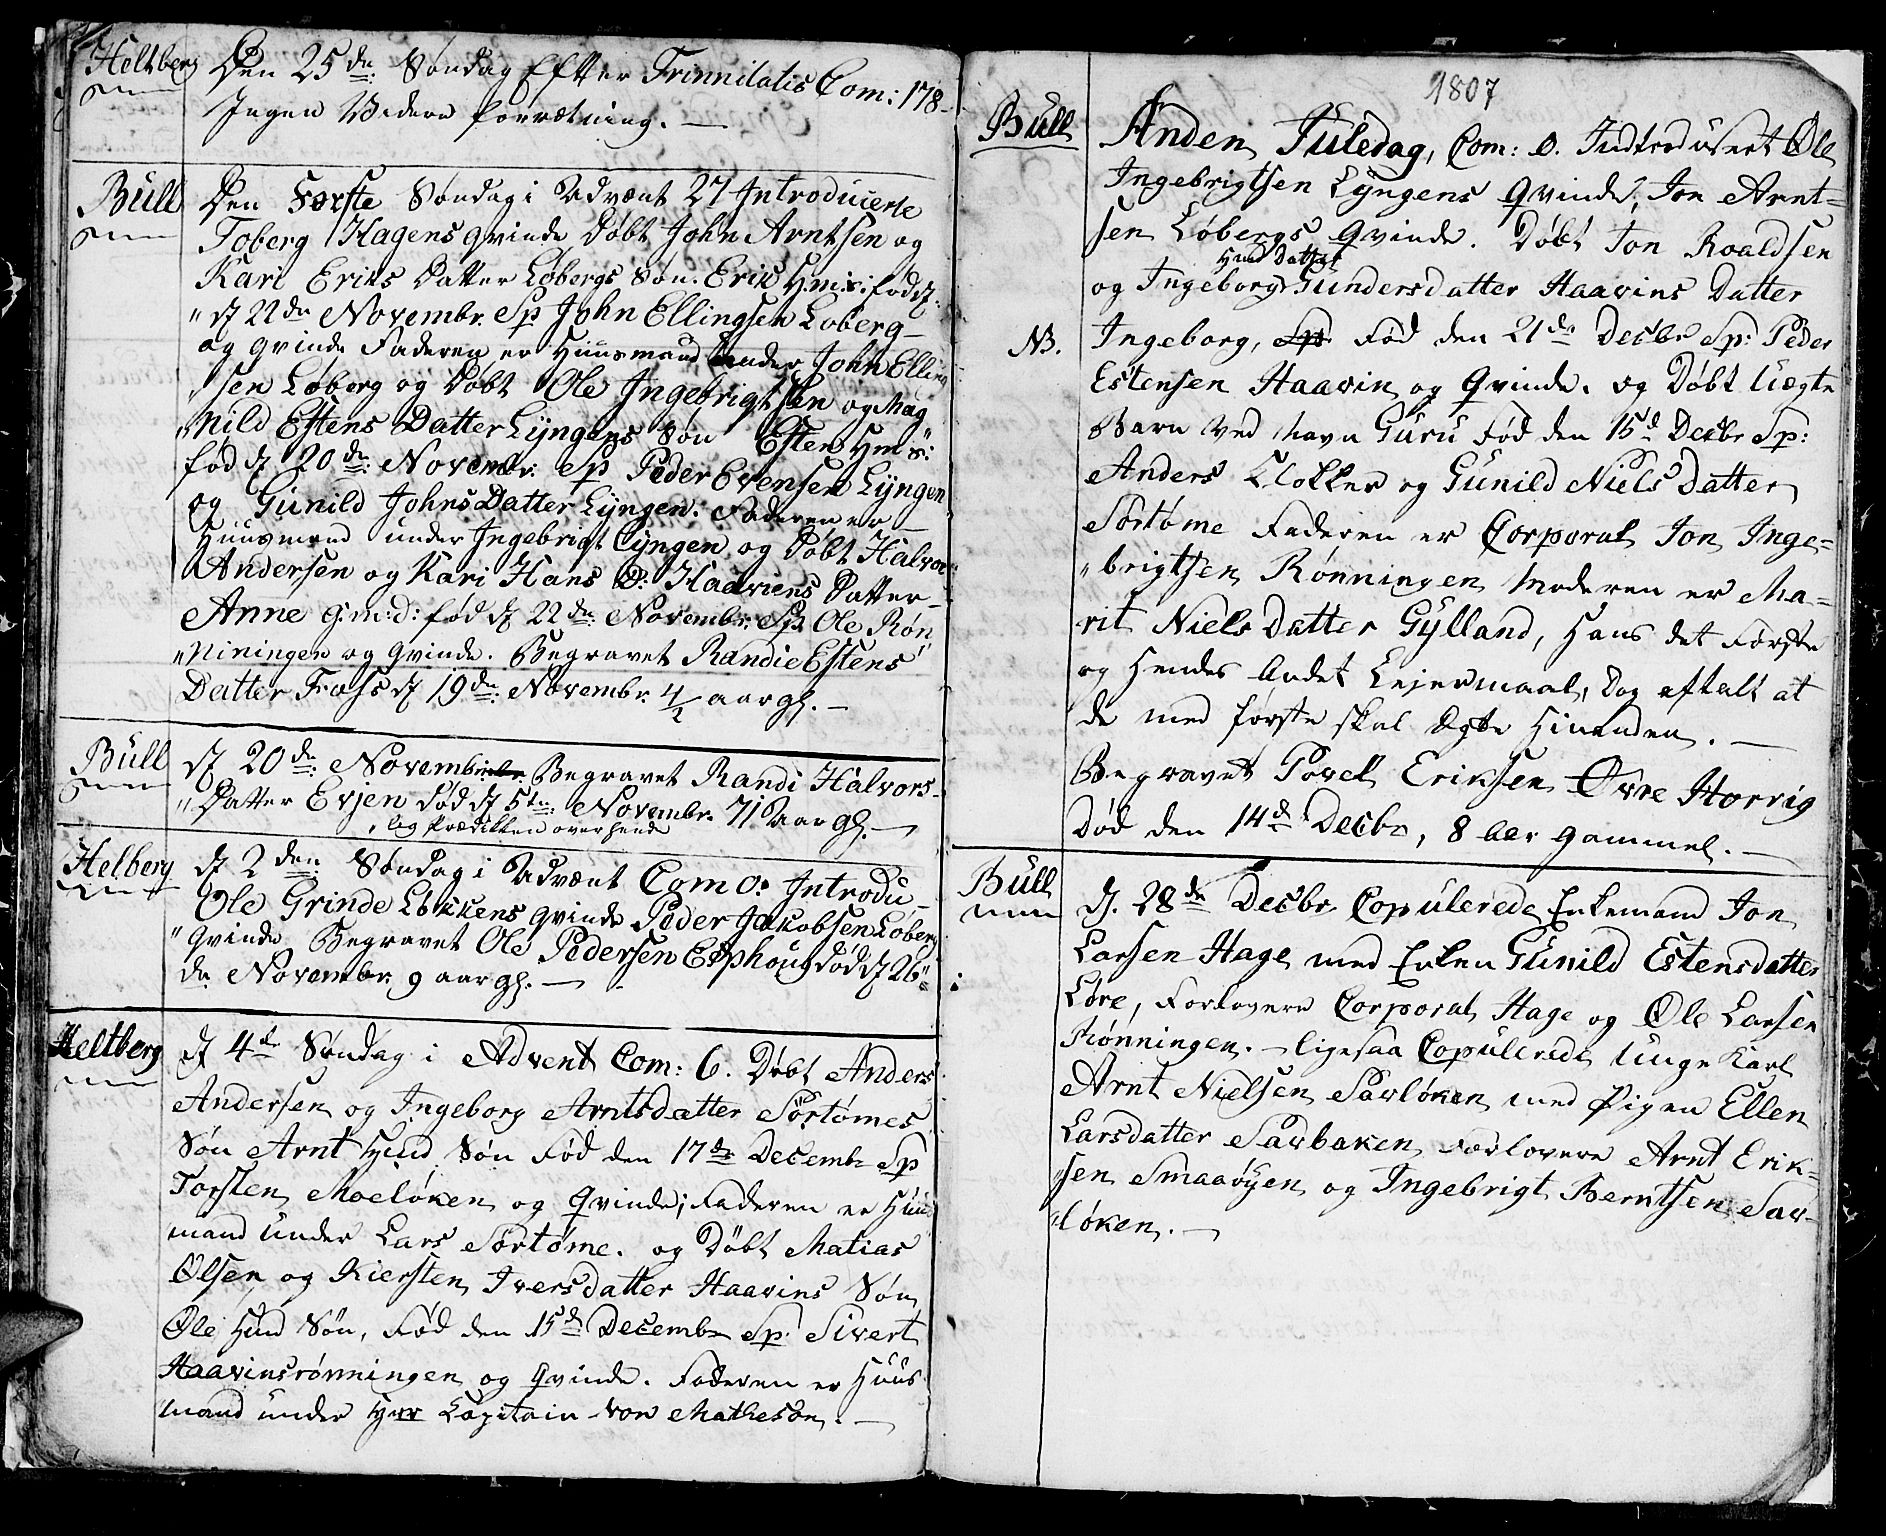 Heltberg
Den 25de Søndag Efter Trinnitatis Com: 178
Ingen Videre forrætning. —
Bull
Den Første Søndag i Advænt 27 Introducerte
Toberg Hagens qvinde Døbt John Arntsen og
Kari Eriks Datter Løbergs Søn. Erik H.m.s: fød d.
"d 22de Novembr. Sp John Ellingsen Loberg
og qvinde Faderen er Huusmand under John Elling
"sen Løberg og Døbt Ole Ingebrigtsen og Mag
"nild Estens Datter Lÿngens Søn Esten H m s:
fød d 20de: Novembr: Sp Peder Evensen Lÿngen
og Gunild Johns Datter Lÿngen. Faderen er
Huusmand under Ingebrigt Lyngen og Døbt Halvor
Andersen og Kari Hans D: Haaviens Datter
Anne g:m:d: fød d 22de: Novembr: Sp Ole Røn
"niningen og qvinde. Begravet Randie Estens
Datter Fross d 19de: Novembr. 4/2 aar gl. —
Bull
d 20de: Novembr. Begravet Randi Halvors-
"Datter Evjen død d 5te: Novembr. 71 Aar gl. —
, og Prædikken over hende
Helberg
d 2den: Søndag i Advænt Com 0: Introdu
Ole Grinde Løkkens qvinde Peder Jakobsen Loberg
"qvinde Begravet Ole Pedersen Ephoug død d 26"
de Novembr. 9 aar gl. —
Heltberg
d 4de Søndag i Advent Com: 6. Døbt Anders
Andersen og Ingeborg Arntsdatter Sørtømes
Søn Arnt Hmd Søn Fød den 17de Decembr Sp
Torsten Moeløken og Qvinde; Faderen er Huus
mand under Lars Sørtøme. og Døbt Matias
Olsen og Kiersten Iversdatter Haavins Søn
Ole Hmd Søn, Fød den 15de Decembr Sp: Sivert
Haavinsrønningen og Qvinde. Faderen er Huus
mand under Hrr Capitain von Matheson. —
1807
Bull
Anden Juledag, Com: 0. Indtrodusert Ole
Ingebrigtsen Lyngens Qvinde, Jon Arnt=
sen Løbergs Qvinde. Døbt Jon Roaldsen
Hmd Datter
og Ingeborg Gundersdatter Haavins Datter
NB.
Ingeborg, Sp: Fød den 21de Decbr Sp: Peder
Estensen Haavin og Qvinde. og Døbt Uægte
Barn ved Navn Guru Fød den 15d Decbr Sp:
Anders Klokker og Gunild Niels Datter
Sørtøme Faderen er Corporal Jon Inge=
"brigtsen Rønningen Moderen er Ma=
rit Niels Datter Gylland, Hans det Første
og Hendes Andet Leiermaal, Dog aftalt at
de med første skal Ægte Hinanden. —
Begravet Povel Eriksen Øvre Horrig
Død den 14d Decbr, 8 Aar Gammel. —
Bull
d. 28de Decbr Copulerede Enkemand Jon
Larsen Hage med Enken Gunild Estensdatter
Løre, Forlovere Corporal Hage og Ole Larsen
Rønningen. — ligesaa Copulerede Unge Karl
Arnt Nielsen Savløken med Pigen Ellen
Larsdatter Savbaken, Forlovere Arnt Erik-
"sen Smaaøyen og Ingebrigt Berntsen Sav-
"løken. —